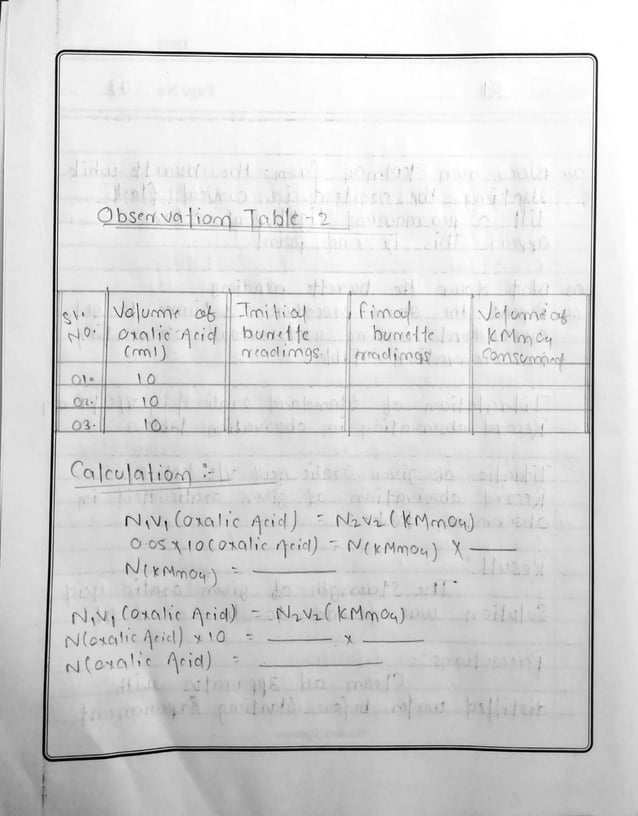 Observation Table-2
Sl. No. Volume of oxalic Acid (ml) Initial burette readings Final burette readings Volume of KMnO4 Consumed
01. 10
02. 10
03. 10
Calculation :-
N1V1 (oxalic Acid) = N2V2 (KMnO4)
0.05 x 10 (oxalic Acid) = N(KMnO4) X ____
N(KMnO4) = ____
N1V1 (oxalic Acid) = N2V2 (KMnO4)
N(oxalic Acid) x 10 = ____ x ____
N(oxalic Acid) = ____